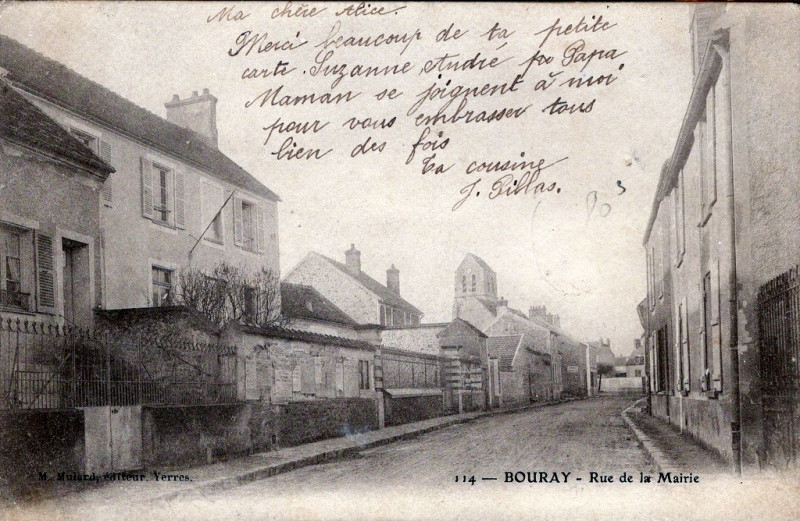 Ma chère Alice.
Merci beaucoup de ta petite
carte. Suzanne, André, Papa
Maman se joignent à moi
pour vous embrasser tous
bien des fois
Ta cousine
J.
M. Mulard, éditeur. Yerres.
114 — BOURAY - Rue de la Mairie